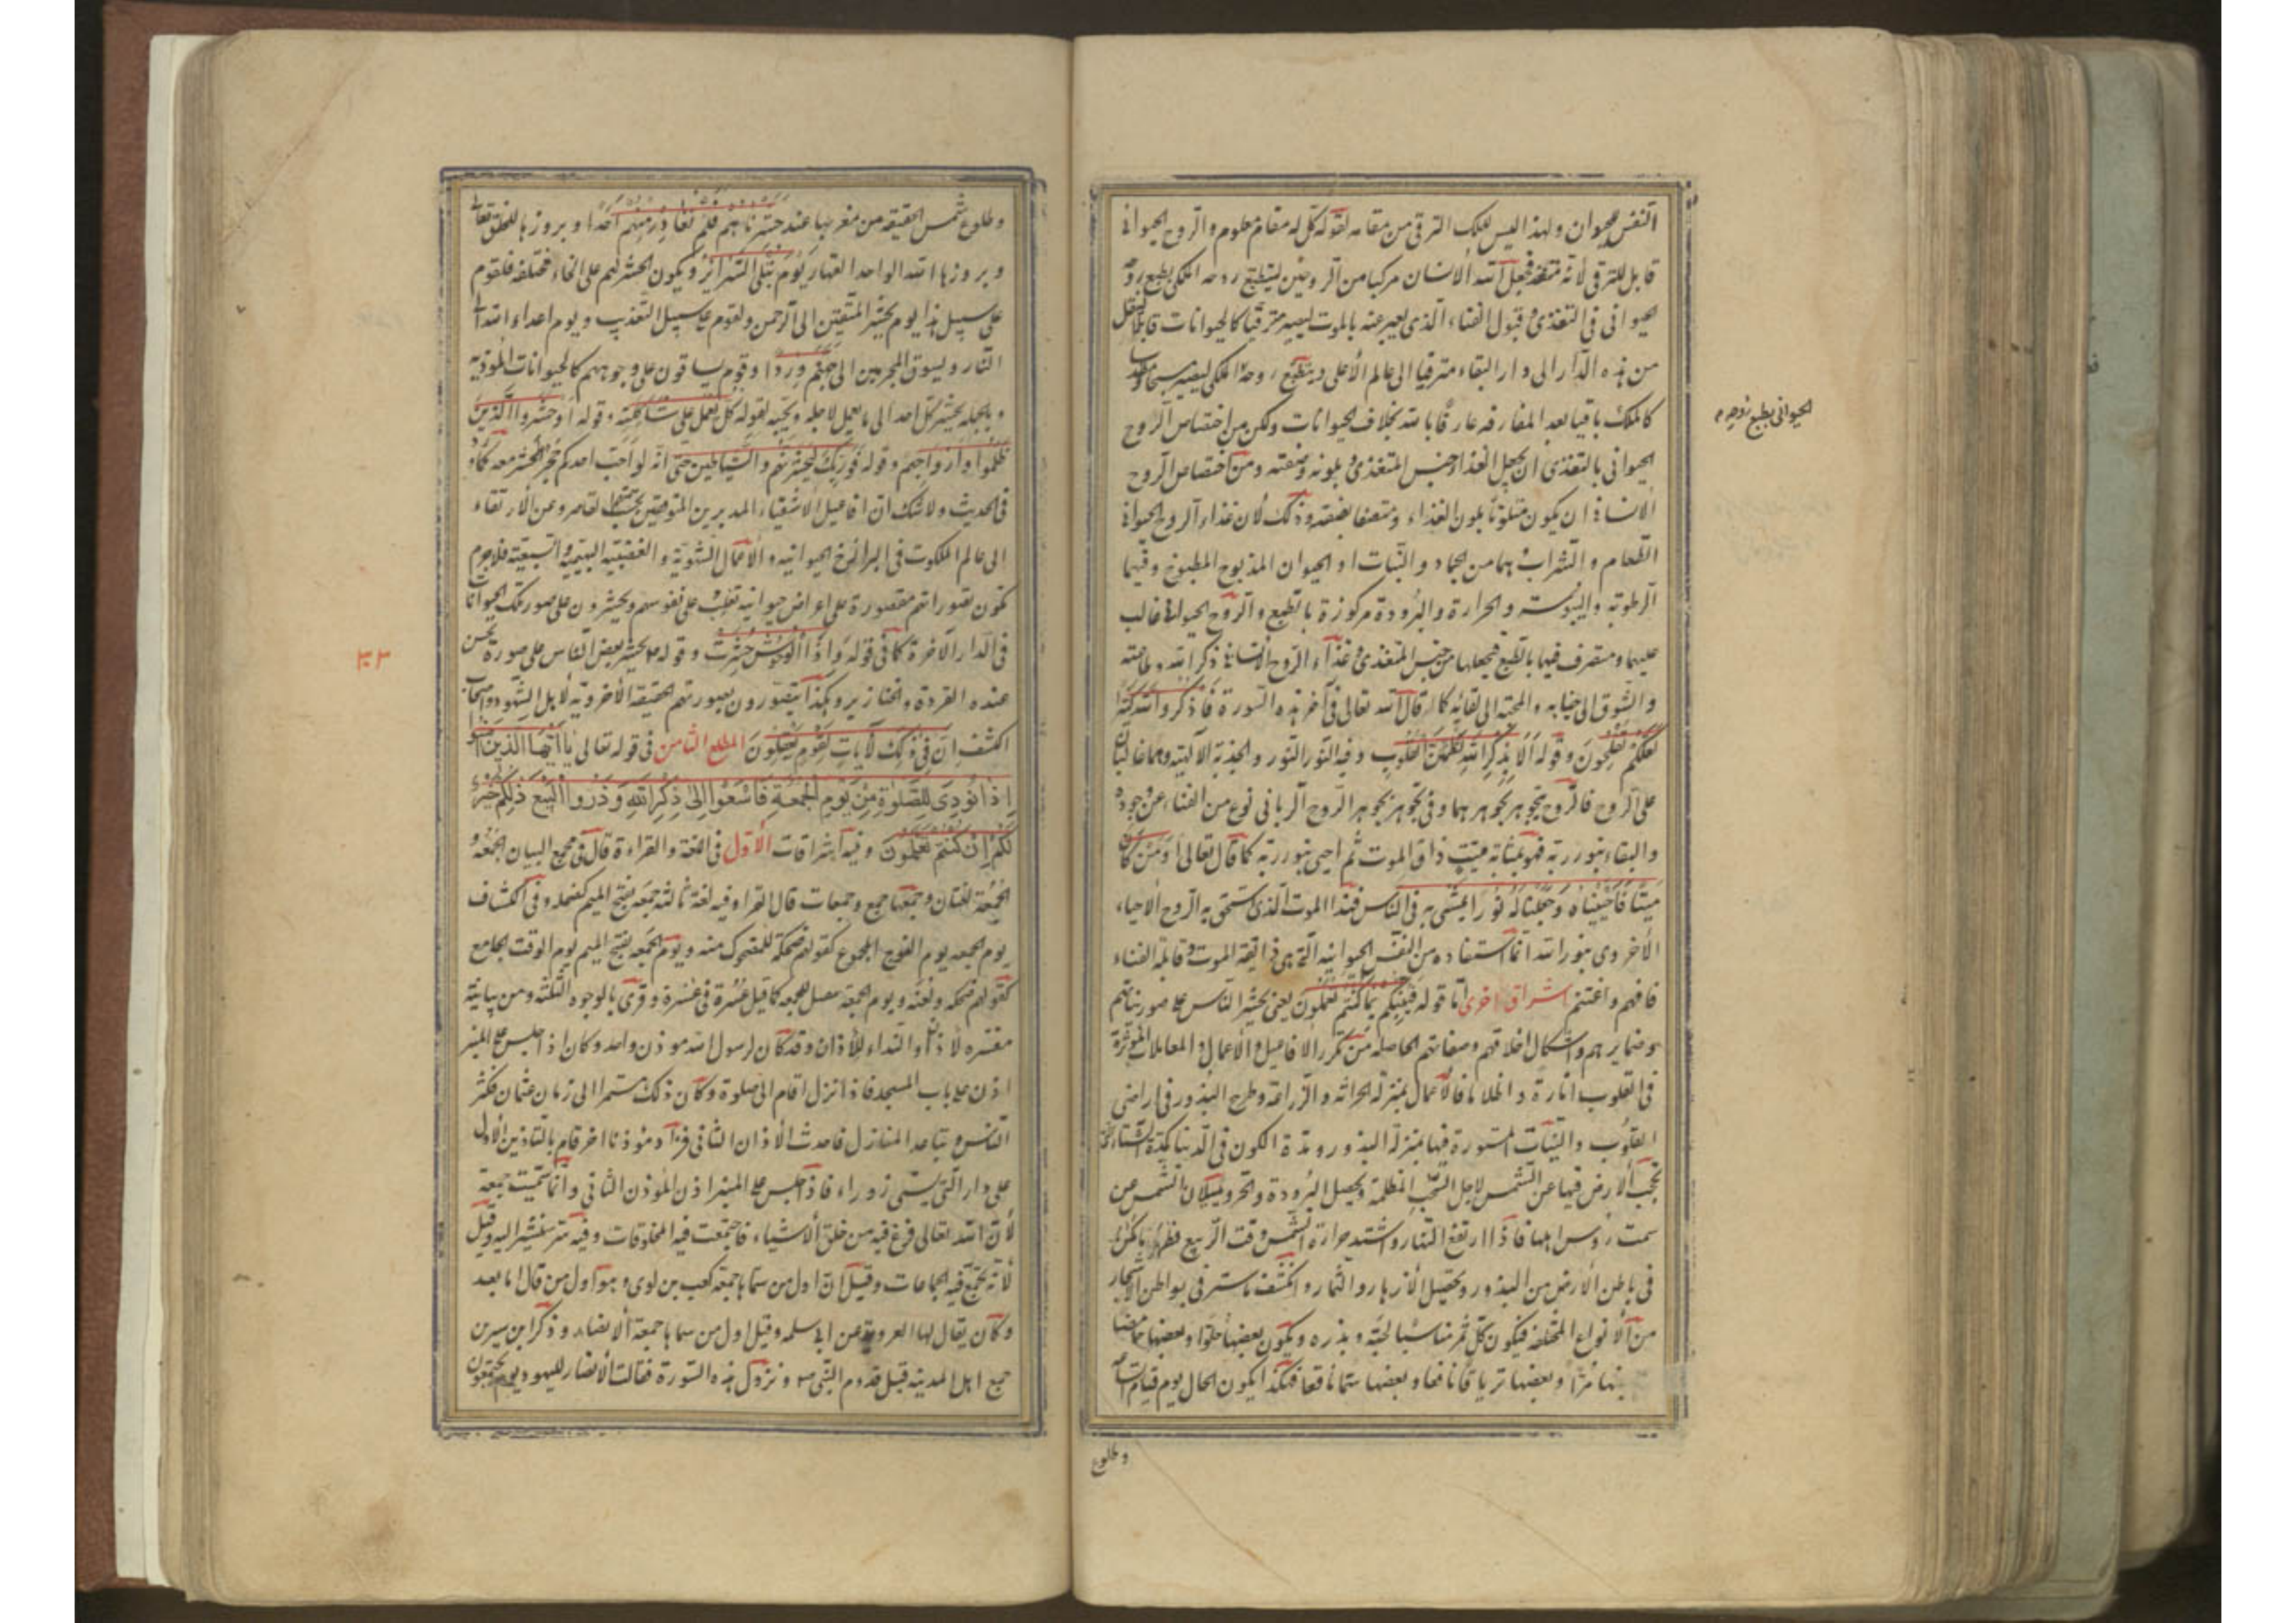 النفس الحيوان ولهذا ليس للملك الترقى من مقامه لقوله كل له مقام معلوم والروح الحيوانى
قابل للترقى لأنه متغذ فجعل الله الانسان مركبا من الروحين لينطبع روحه الملكى بطبع روحه
حيوانى فى التغذى وقبول الفناء الذى يعبر عنه بالموت ليصير مترقيا كالحيوانات قابلا للنقل
من هذه الدار الى دار البقاء مترقيا الى عالم الأعلى وينطبع روحه الملكى ليصير مسبحا مقدسا
الحيوانى بطبع روحه
كالملك باقيا بعد المفارقه عارفا بالله بخلاف الحيوانات ولكن من اختصاص الروح
الحيوانى بالتغذى ان يجعل الغذاء جنس المتغذى وبلونه وصفته ومن اختصاص الروح
الانسانى ان يكون متلونا بلون الغذاء ومتصفا بصفته وذلك لأن غذاء الروح الحيوانى
الطعام والشراب بهما من الجماد والنبات او الحيوان المذبوح المطبوخ وفيها
الرطوبة واليبوسة والحرارة والبرودة مركوزة بالطبع والروح الحيوانى غالب
عليها ومتصرف فيها بالطبع فيجعلها من جنس المتغذى وغذاء الروح الانسانى ذكر الله وطاعته
والشوق الى جنابه والمحبة الى لقائه كما قال الله تعالى فى آخر هذه السورة فاذكروا الله كثيرا
لعلكم تفلحون وقوله ألا بذكر الله تطمئن القلوب وفيه النور النور والجذبة الالهية وهما غالبتان
على الروح فالروح يتجوهر بجوهرهما وفى تجوهره بجوهر الروح الربانى نوع من الفناء عن وجوده
والبقاء بنور ربه فهو بمثابة ميت ذاق الموت ثم احيى بنور ربه كما قال تعالى أومن كان
ميتا فأحييناه وجعلنا له نورا يمشى به فى الناس فهذا الموت الذى استحق به الروح الاحياء
الأخروى بنور الله انما استفاده من النفس الحيوانيه التى هى ذائقة الموت وقابلة الفناء
فافهم واغتنم اشراق اخرى اما قوله فينبئكم بما كنتم تعملون يعنى يحشر الناس على صور نياتهم
وضمايرهم واشكال اخلاقهم وصفاتهم الحاصله من تكرر الافاعيل والأعمال والمعاملات المؤثرة
فى القلوب انارة واظلاما فالأعمال بمنزلة الحراثه والزراعة وطرح البذور فى اراضى
القلوب والنيات المستورة فيها بمنزلة البذور ومدة الكون فى الدنيا كمدة الشتاء
تحجب الأرض فيها عن الشمس لاجل السحب المظلمة ويحصل البرودة والحر وميلان الشمس عن
سمت رؤس اهلها فاذا ارتفع النهار واشتد حرارة الشمس وقت الربيع فظهر ما كمن
فى باطن الأرض من البذور ويحصل الأزهار والثمار وانكشف ما ستر فى بواطن الأشجار
من الأنواع المختلفه فيكون كل ثمر مناسبا لحبه وبذره ويكون بعضها حلوا وبعضها حامضا
منها مرا وبعضها ترياقا نافعا وبعضها سما ناقعا فهكذا يكون الحال يوم قيام الساعة
وطلوع
وطلوع شمس الحقيقه من مغربها عند حشرناهم فلم نغادر منهم احدا وبروزها للخلق
وبرزوا لله الواحد القهار يوم تبلى السرائر ويكون الحشر لهم على انحاء مختلفه فلقوم
على سبيل هذا يوم يحشر المتقين الى الرحمن ولقوم على سبيل التعذيب ويوم اعداء الله الى
النار ويسوق المجرمين الى جهنم وردا وقوم يساقون على وجوههم كالحيوانات الموذيه
وبالجمله يحشر كل احد الى ما يعمل لاجله ويحبه لقوله كل يعمل على شاكلته وقوله احشروا الذين
ظلموا وازواجهم وقوله فوربك لنحشرنهم والشياطين حتى انه لو احب احدكم حجر الحشر معه كما ورد
فى الحديث ولا شك ان افاعيل الاشقياء المدبرين لقاصر وعن الارتقاء
الى عالم الملكوت فى البرازخ الحيوانيه والأعمال الشهوية والغضبيه البهيميه والسبعيه فلا جرم
تكون تصوراتهم مقصورة على اعراض حيوانيه تغلب على نفوسهم ويحشرون على صور تلك الحيوانات
فى الدار الآخرة كما فى قوله واذا الوحوش حشرت وقوله يحشر بعض الناس على صورة يحسن
عنده القردة والخنازير وهكذا يتصورون بصورتهم الحقيقه الأخرويه لأهل الشهود واصحاب
الكشف ان فى ذلك لآيات لقوم يعقلون المطلع الثامن فى قوله تعالى يا ايها الذين آمنوا
اذا نودى للصلوة من يوم الجمعة فاسعوا الى ذكر الله وذروا البيع ذلكم خير
لكم ان كنتم تعلمون وفيه اشراقات الأول فى اللغة والقراءة قال فى مجمع البيان الجمعة و
الجمعة لغتان وجمعها جمع وجمعات قال الفراء وفيه لغة ثالثه جمعة بفتح الميم كضحكه وفى الكشاف
يوم الجمعه يوم الفوج المجموع كقولهم ضحكة للمضحوك منه ويوم الجمعة بفتح الميم يوم الوقت الجامع
كقولهم ضحكه ولعنه ويوم الجمعة تثقيل للجمعه كما قيل عسرة فى عسرة وقرئ بالوجوه الثلثه ومن بيانية
مفسره لاذا والنداء للأذان وقد كان لرسول الله موذن واحد وكان اذا جلس على المنبر
اذن على باب المسجد فاذا نزل اقام الصلوة وكان ذلك مستمرا الى زمان عثمان فكثر
الناس وتباعد المنازل فاحدث الأذان الثانى فزاد موذنا اخر قام بالتاذين الأول
على دار التى يسمى زوراء فاذا جلس على المنبر اذن الموذن الثانى وانما سميت جمعة
لأن الله تعالى فرغ فيه من خلق الأشياء فاجتمعت فيه المخلوقات وفيه سر سنشير اليه وقيل
لأنه تجتمع فيه الجماعات وقيل ان اول من سماها جمعة كعب بن لوى وهو اول من قال اما بعد
وكان يقال لها العروبة عن ابى سلمه وقيل اول من سماها جمعة الأنصار وذكر ابن سيرين
جمع اهل المدينه قبل قدوم النبى ص ونزول هذه السورة فقالت الأنصار لليهود يوم يجتمعون